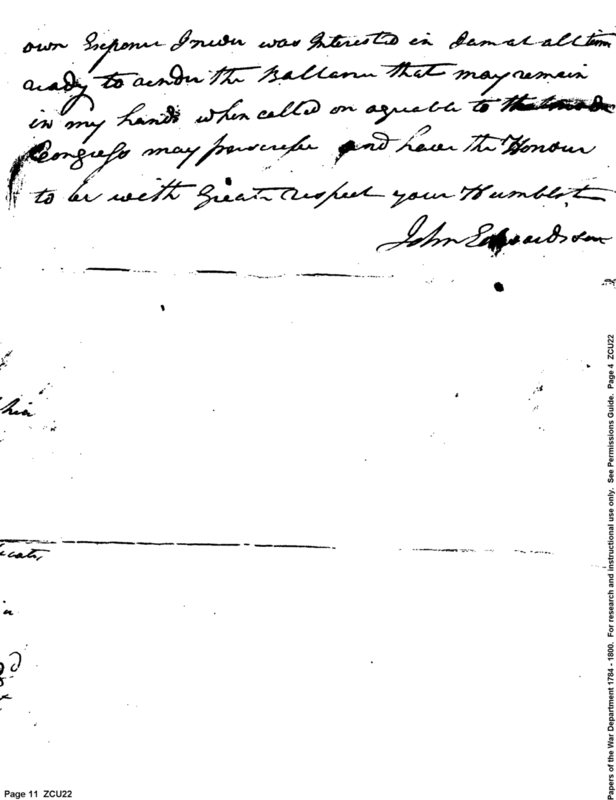 own Expence I never was Interested in I am at all times
ready to render the Ballance that may remain
in my hands when called on agreable to the mode
Congress may prescribe and have the Honour
to be with Great respect your Humble St
John Edwards
Papers of the War Department 1784 - 1800. For research and instructional use only. See Permissions Guide. Page 4 ZCU22
Page 11 ZCU22